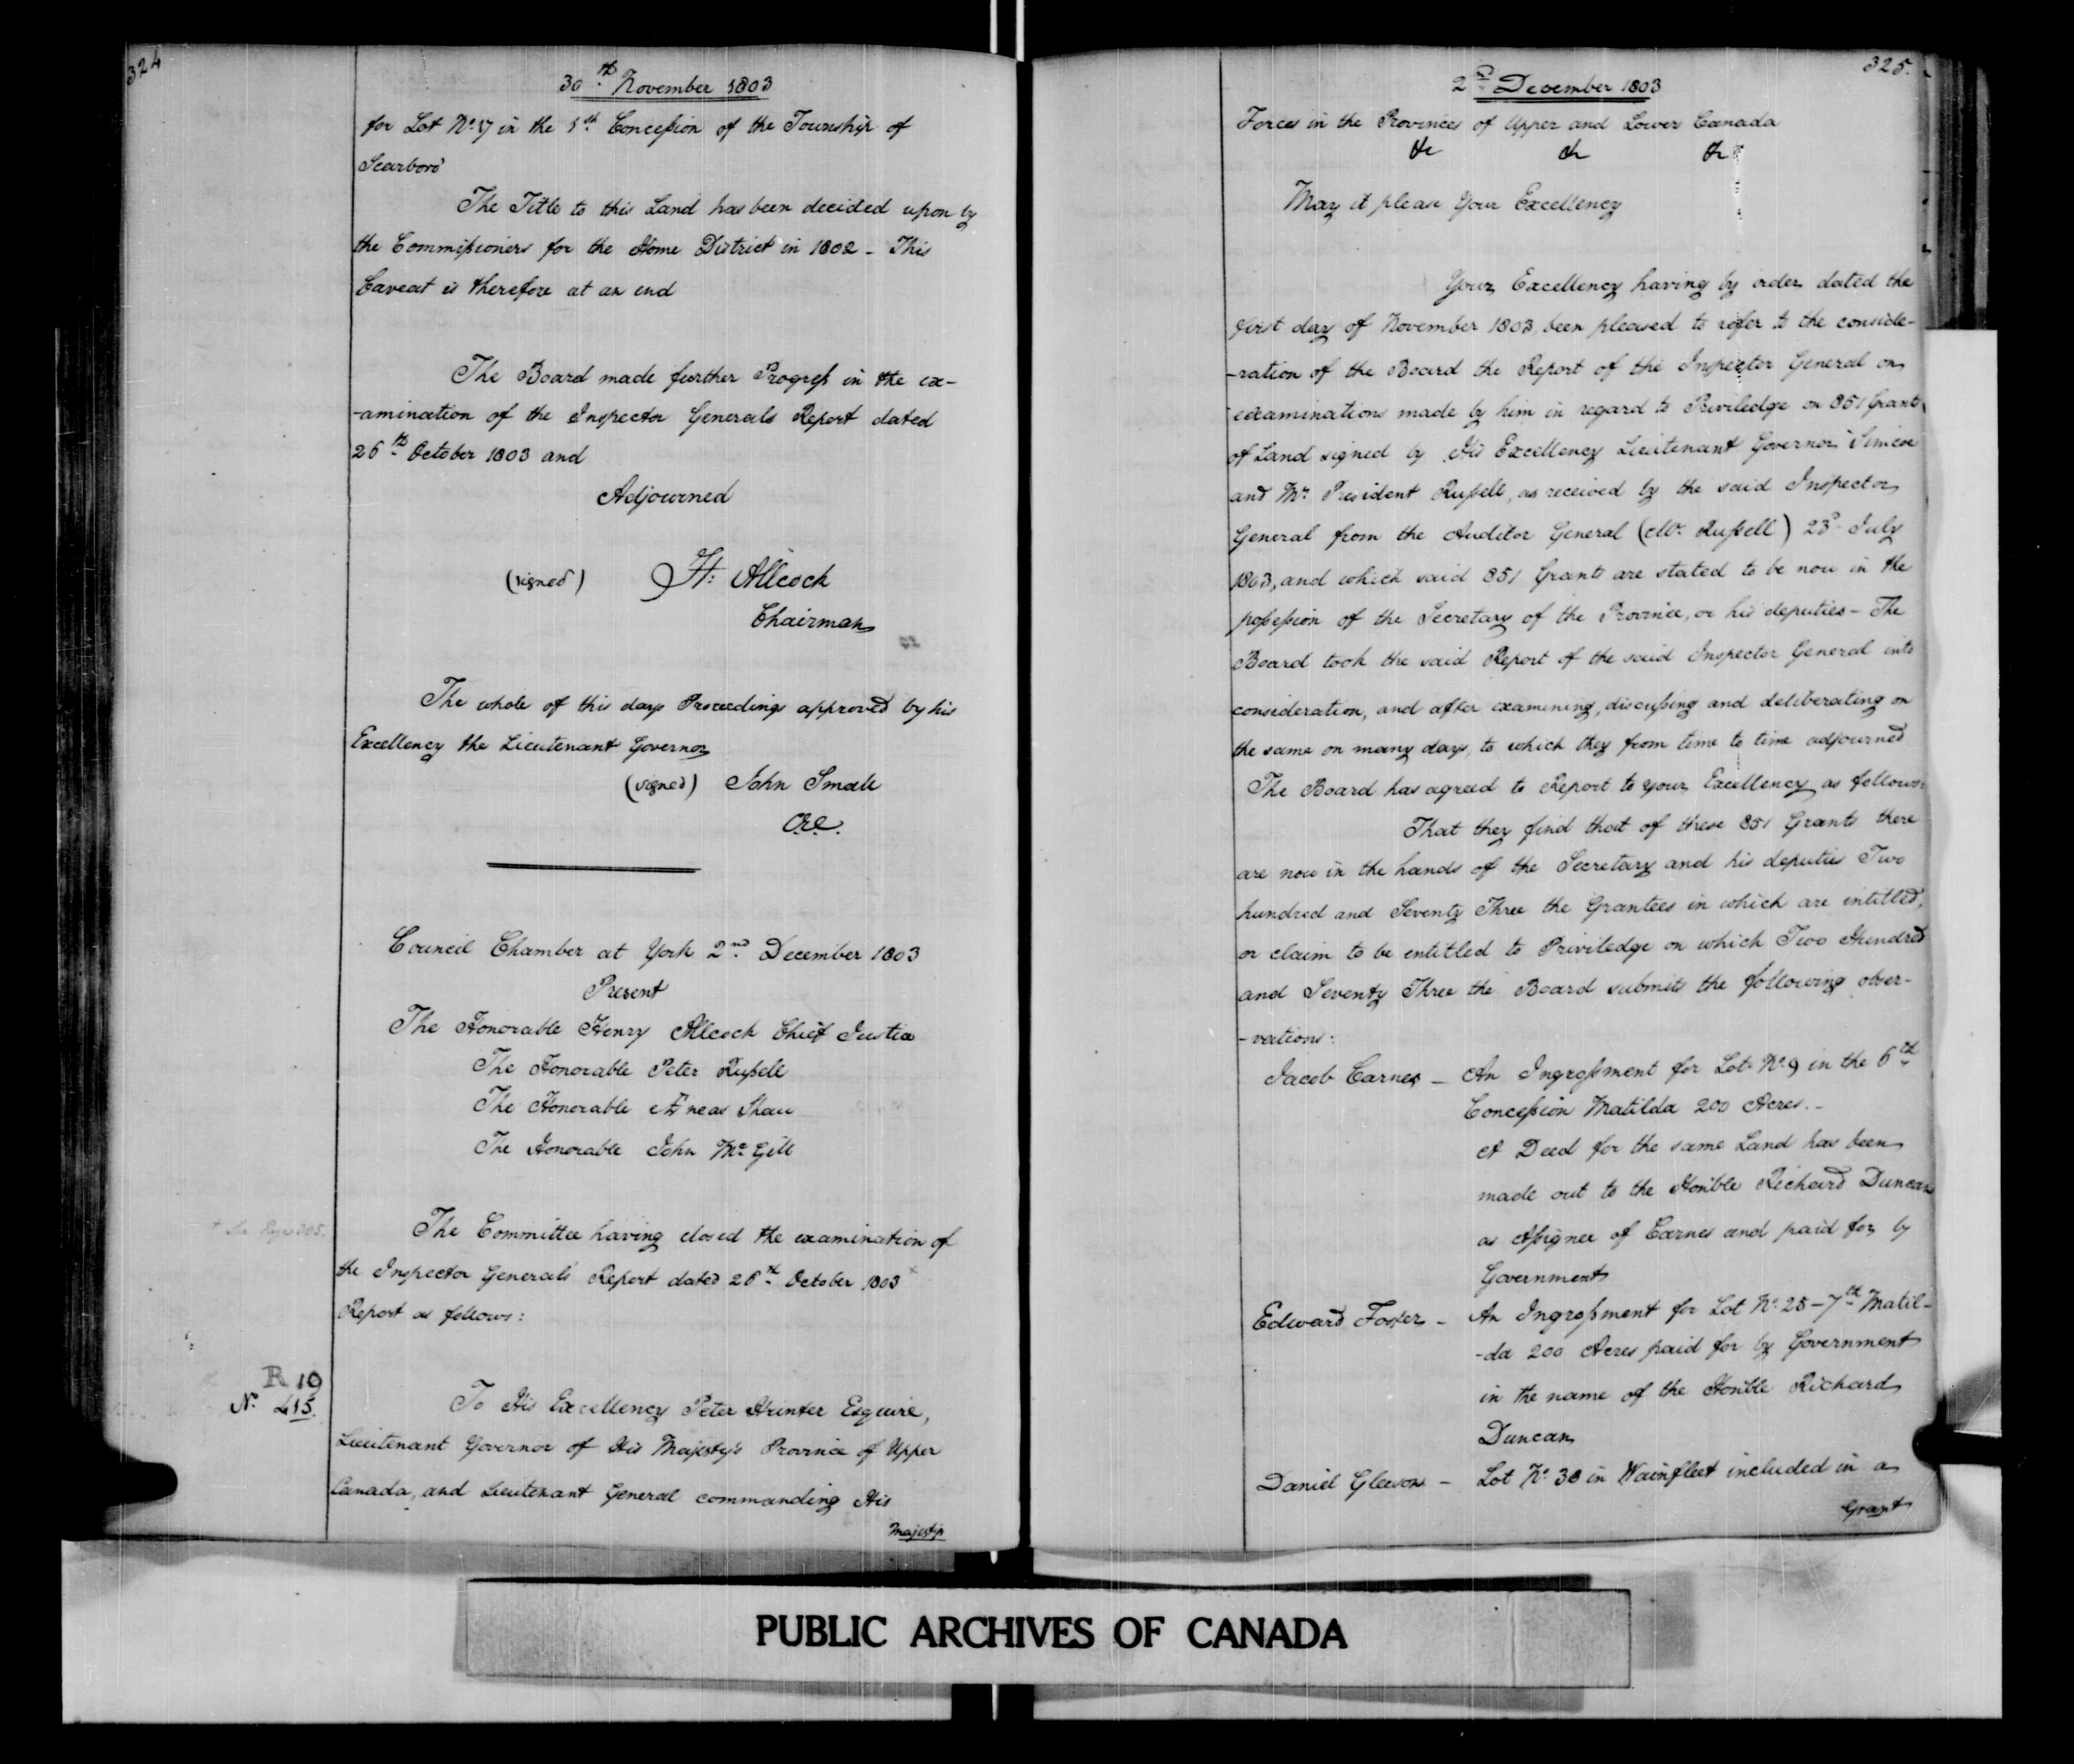 324
30th November 1803
for Lot No. 17 in the 1st Concession of the Township of
Scarboro'
The Title to this Land has been decided upon by
the Commissioners for the Home District in 1802 - This
Caveat is therefore at an end
The Board made further Progress in the ex-
-amination of the Inspector Generals Report dated
26th October 1803 and
Adjourned
(signed) H: Allcock
Chairman
The whole of this days Proceedings approved by his
Excellency the Lieutenant Governor
(signed) John Small
C.E.C.
Council Chamber at York 2nd December 1803
Present
The Honorable Henry Allcock Chief Justice
The Honorable Peter Russell
The Honorable Æneas Shaw
The Honorable John McGill
+ See Page 305.
The Committee having closed the examination of
the Inspector Generals' Report dated 26th October 1803 +
Report as follows:
R 19
No. L15.
To His Excellency Peter Hunter Esquire,
Lieutenant Governor of His Majesty's Province of Upper
Canada, and Lieutenant General commanding His
Majesty's
325.
2nd December 1803
Forces in the Provinces of Upper and Lower Canada
&c &c &c
May it please Your Excellency
Your Excellency having by order dated the
first day of November 1803, been pleased to refer to the conside-
-ration of the Board the Report of the Inspector General on
examinations made by him in regard to Priviledge on 851 Grants
of Land signed by His Excellency Lieutenant Governor Simcoe
and Mr. President Russell, as received by the said Inspector
General from the Auditor General (Mr. Russell) 23d July
1803, and which said 851 Grants are stated to be now in the
possession of the Secretary of the Province, or his deputies - The
Board took the said Report of the said Inspector General into
consideration, and after examining, discussing and deliberating on
the same on many days, to which they from time to time adjourned
The Board has agreed to Report to your Excellency as follows:
That they find that of these 851 Grants there
are now in the hands of the Secretary and his deputies Two
hundred and Seventy Three the Grantees in which are intitled,
or claim to be entitled to Priviledge on which Two Hundred
and Seventy Three the Board submits the following obser-
-vations:
Jacob Carnes - An Ingrossment for Lot No. 9 in the 6th
Concession Matilda 200 Acres. -
A Deed for the same Land has been
made out to the Honble Richard Duncan
as Assignee of Carnes and paid for by
Government
Edward Foster - An Ingrossment for Lot No. 25 - 7th Matil-
-da 200 Acres paid for by Government
in the name of the Honble Richard
Duncan
Daniel Gleeson - Lot No. 38 in Wainfleet included in a
Grant
PUBLIC ARCHIVES OF CANADA